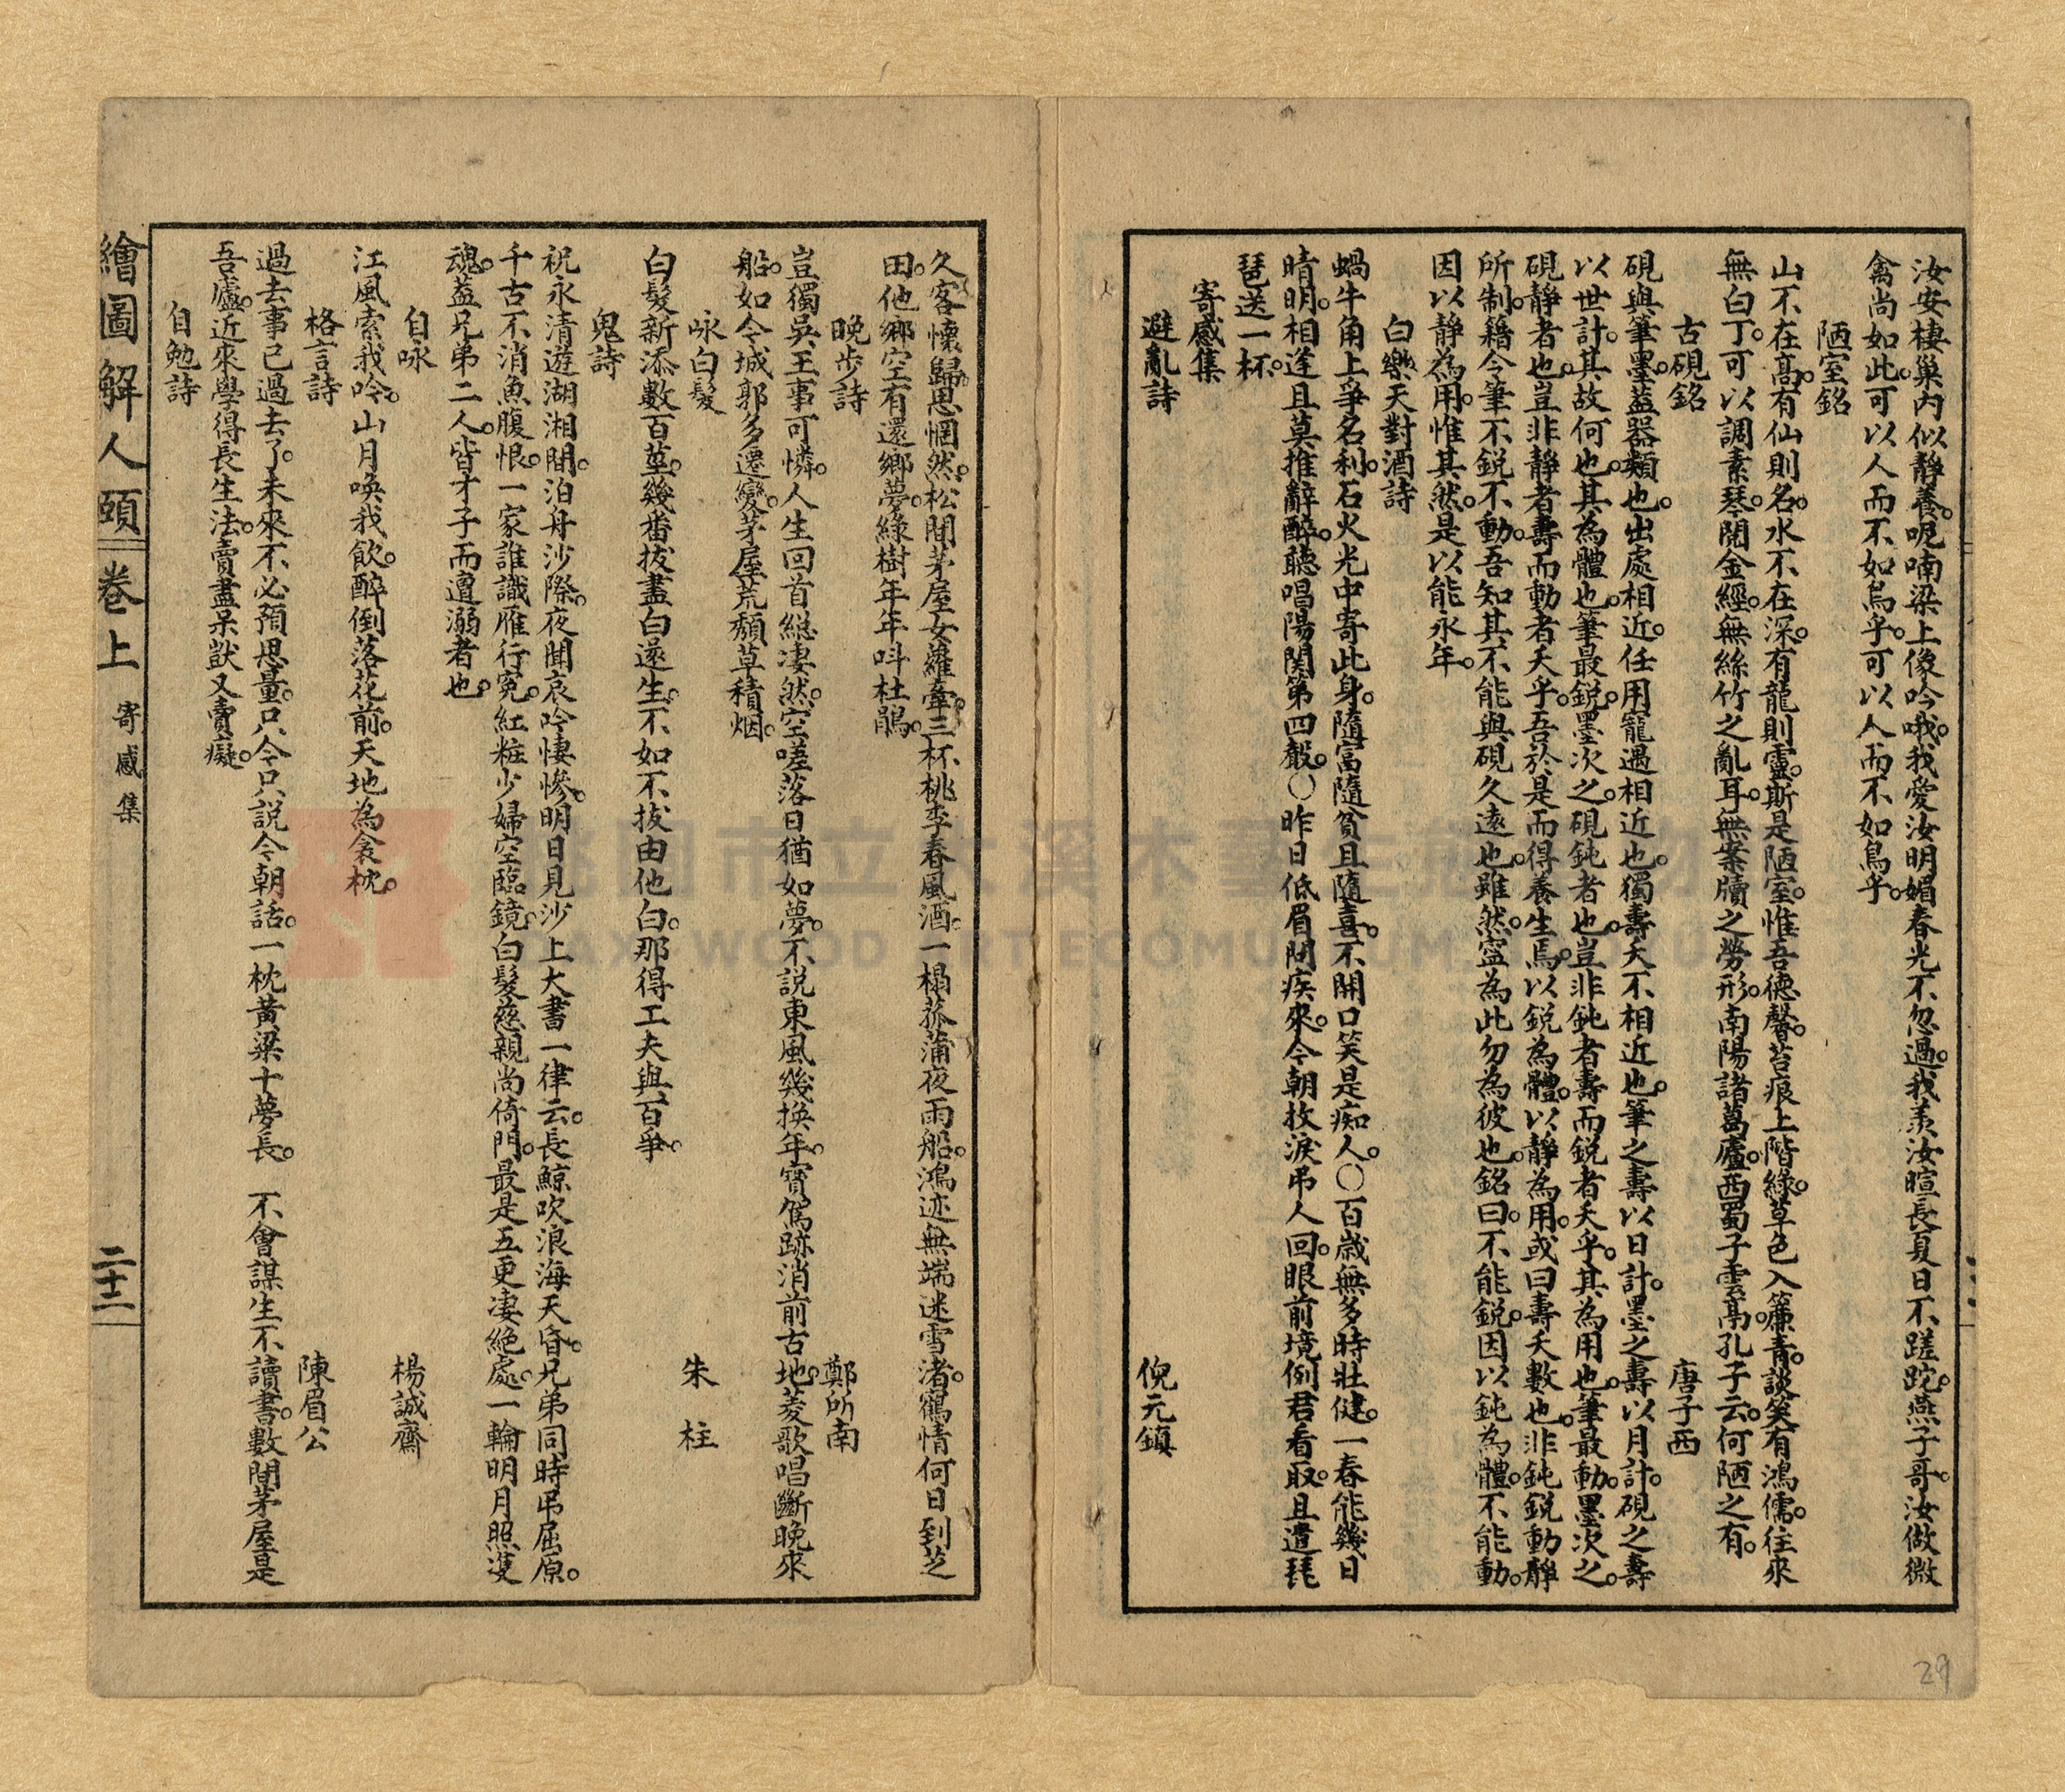 汝安棲巢內似靜養。呢喃梁上像吟哦。我愛汝明媚春光不忽過。我羨汝暄長夏日不蹉跎。燕子哥。汝做微
禽尚如此。可以人而不如鳥乎。可以人而不如鳥乎。
陋室銘
山不在高。有仙則名。水不在深。有龍則靈。斯是陋室。惟吾德馨。苔痕上階綠。草色入簾青。談笑有鴻儒。往來
無白丁。可以調素琴。閱金經。無絲竹之亂耳。無案牘之勞形。南陽諸葛廬。西蜀子雲亭。孔子云。何陋之有。
古硯銘 唐子西
硯與筆墨。葢器類也。出處相近。任用寵遇相近也。獨壽夭不相近也。筆之壽以日計。墨之壽以月計。硯之壽
以世計。其故何也。其為體也。筆最銳。墨次之。硯鈍者也。豈非鈍者壽而銳者夭乎。其為用也。筆最動。墨次之。
硯靜者也。豈非靜者壽而動者夭乎。吾於是而得養生焉。以銳為體。以靜為用。或曰壽夭數也。非鈍銳動靜
所制。籍令筆不銳不動。吾知其不能與硯久遠也。雖然。寧為此勿為彼也。銘曰。不能銳。因以鈍為體。不能動。
因以靜為用。惟其然。是以能永年。
白樂天對酒詩
蝸牛角上爭名利。石火光中寄此身。隨富隨貧且隨喜。不開口笑是痴人。〇百歲無多時壯健。一春能幾日
晴明。相逢且莫推辭醉。聽唱陽関第四聲。〇昨日低眉問疾來。今朝抆淚吊人回。眼前境例君看取。且遣琵
琶送一杯。
寄感集
避亂詩 倪元鎮
久客懷歸思惘然。松間茅屋女蘿牽。三杯桃李春風酒。一榻菰蒲夜雨船。鴻迹無端迷雪渚。鶴情何日到芝
田。他鄉空有還鄉夢。綠樹年年呌杜鵑。
晚步詩 鄭所南
豈獨吳王事可憐。人生回首緫凄然。空嗟落日猶如夢。不說東風幾換年。寶篤跡消前古地。菱歌唱斷晚來
船。如今城郭多遷變。茅屋荒頹草積烟。
咏白髮 朱柱
白髮新添數百莖。幾番拔盡白遂生。不如不拔由他白。那得工夫與百爭。
鬼詩
祝永清遊湖湘間。泊舟沙際。夜聞哀吟悽慘。明日見沙上大書一律云。長鯨吹浪海天昏。兄弟同時吊屈原。
千古不消魚腹恨。一家誰識雁行寃。紅粧少婦空臨鏡。白髮慈親尚倚門。最是五更凄絕處。一輪明月照雙
魂。葢兄弟二人。皆才子而遭溺者也。
自咏 楊誠齋
江風索我吟。山月喚我飲。醉倒落花前。天地為衾枕。
格言詩 陳眉公
過去事已過去了。未來不必預思量。只今只說今朝話。一枕黃粱十夢長。 不會謀生不讀書。數間茅屋是
吾廬。近來學得長生法。賣盡呆獃又賣癡。
自勉詩
繪圖解人頤 卷上 寄感集 二十二
29